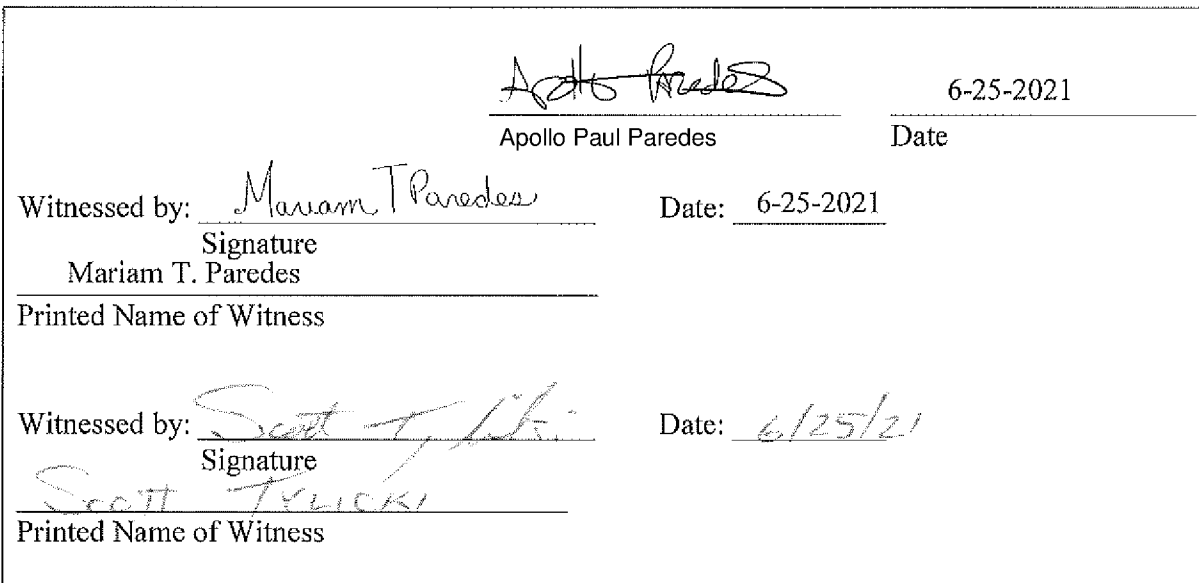 Apollo Paredes 6-25-2021
Apollo Paul Paredes Date
Witnessed by: Mariam T Paredes Date: 6-25-2021
Signature
Mariam T. Paredes
Printed Name of Witness
Witnessed by: Scott Tylicki Date: 6/25/21
Signature
SCOTT TYLICKI
Printed Name of Witness